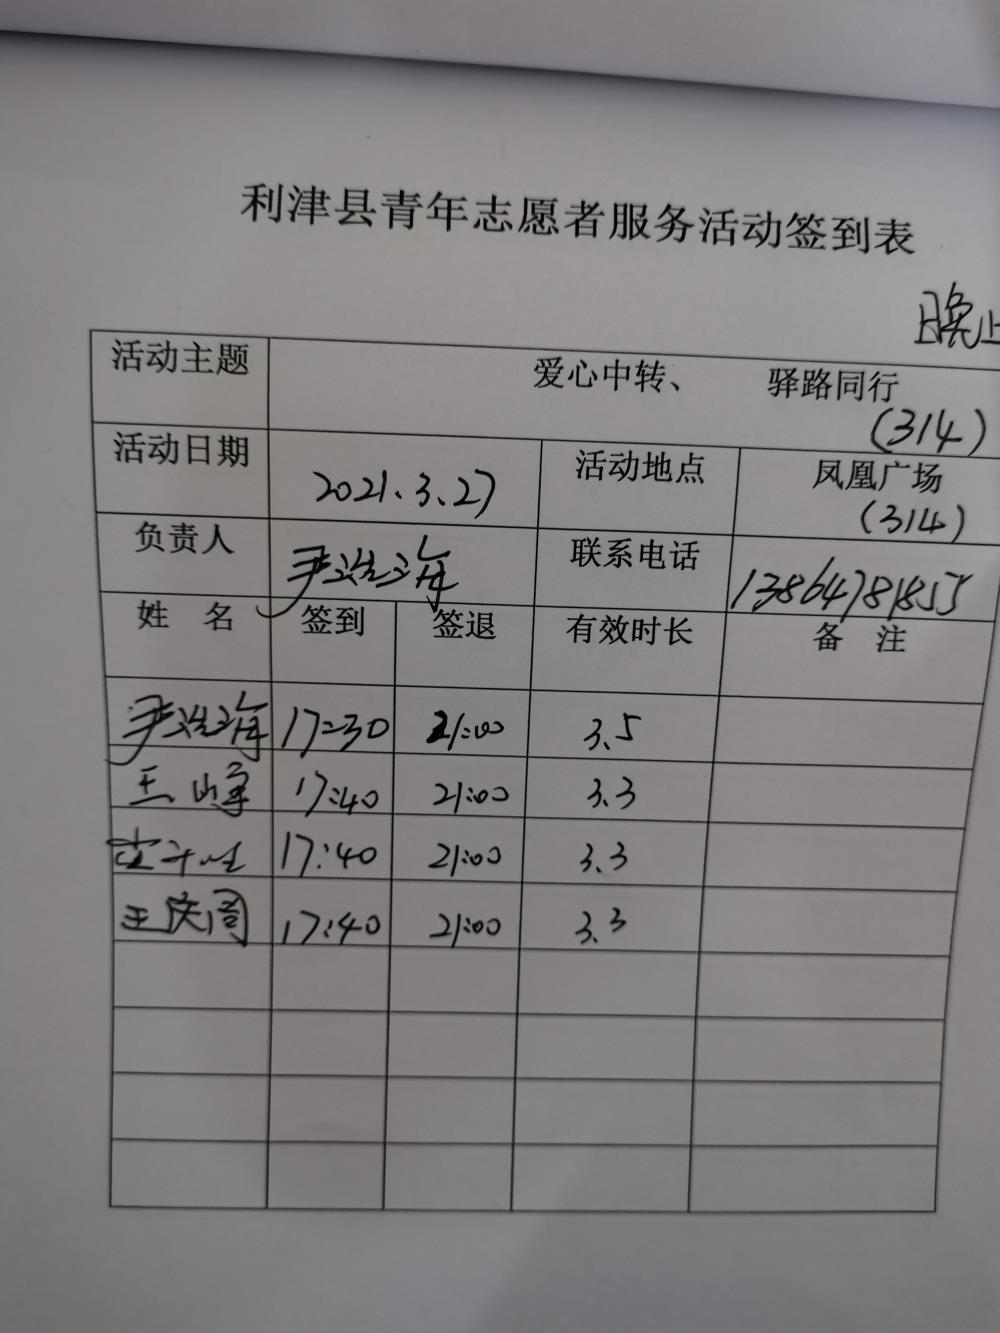 利津县青年志愿者服务活动签到表
晚上
活动主题 爱心中转、 驿路同行
(314)
活动日期 2021.3.27 活动地点 凤凰广场
(314)
负责人 尹 海 联系电话 13864781855
姓 名 签到 签退 有效时长 备 注
尹 海 17:30 21:00 3.5
王峰 17:40 21:00 3.3
17:40 21:00 3.3
王庆周 17:40 21:00 3.3